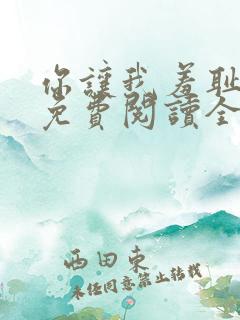 你讓我羞耻
免費閱讀全
西田東
未经同意禁止转载